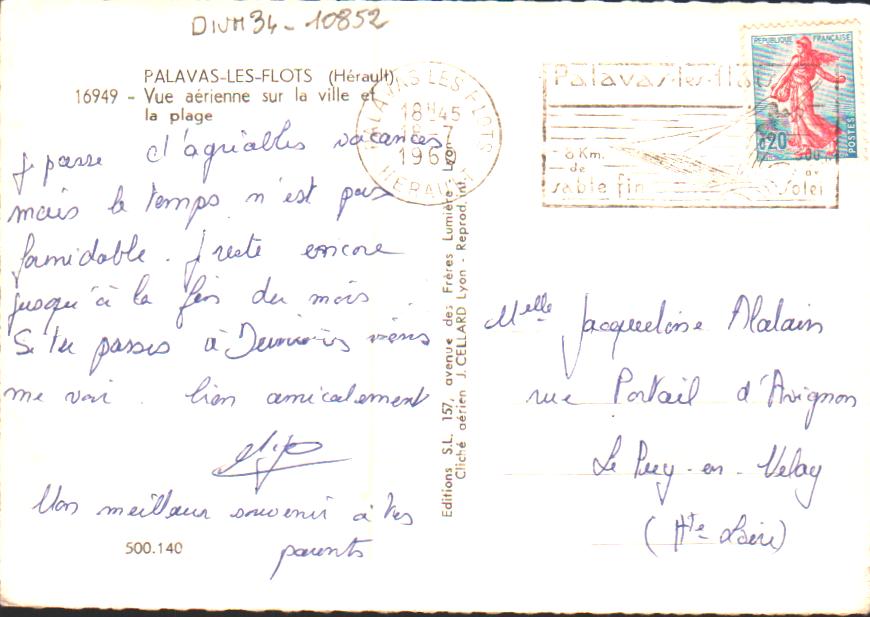 DIVM34-10852
PALAVAS-LES-FLOTS (Hérault)
16949 - Vue aérienne sur la ville et
la plage
Je passe d'agréables vacances
mais le temps n'est pas
formidable. Je reste encore
jusqu'à la fin du mois.
Si tu passes à viens
me voir. bien amicalement
Mon meilleur souvenir à tes
parents
500.140
Editions S.L. 157, avenue des Frères Lumière Lyon
Cliché aérien J. CELLARD Lyon - Reprod. int.
PALAVAS LES FLOTS
18H45
18-7
196
HERAULT
Palavas-les-flots
8 Km.
de
sable fin
500
soleil
REPUBLIQUE FRANÇAISE
0,20
POSTES
Melle Jacqueline
rue Portail d'Avignon
Le Puy-en-Velay
(Hte Loire)